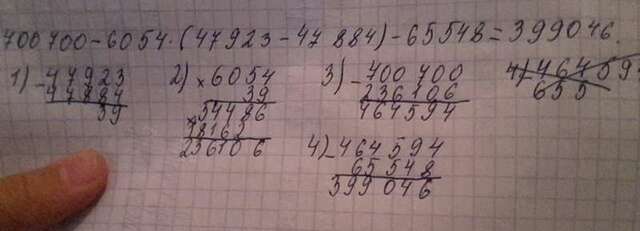 700700-6054·(47923-47884)-65548=399046.
1) -47923
47884
39
2) ×6054
39
54486
18162
236106
3) -700700
236106
464594
4) -46459
655
4) -464594
65548
399046